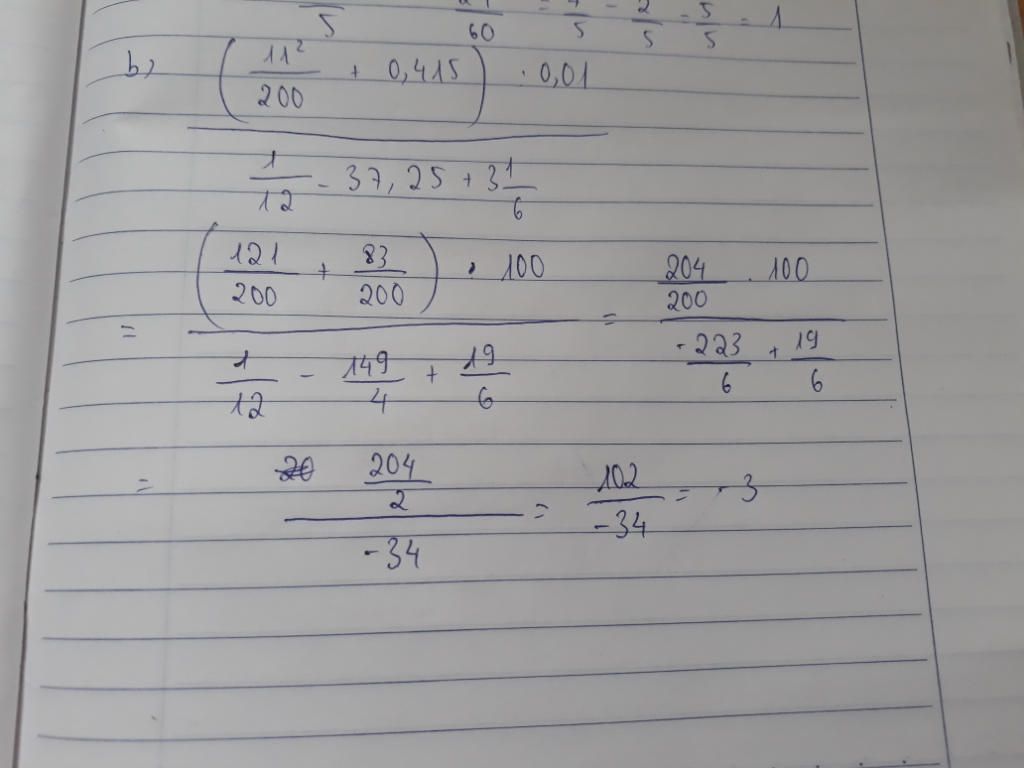 5 60 = 7/5 - 2/5 = 5/5 = 1
b) (11²/200 + 0,415) : 0,01
1/12 - 37,25 + 3 1/6
= (121/200 + 83/200) · 100 / (1/12 - 149/4 + 19/6) = (204/200 · 100) / (-223/6 + 19/6)
= (204/2) / -34 = 102/-34 = -3